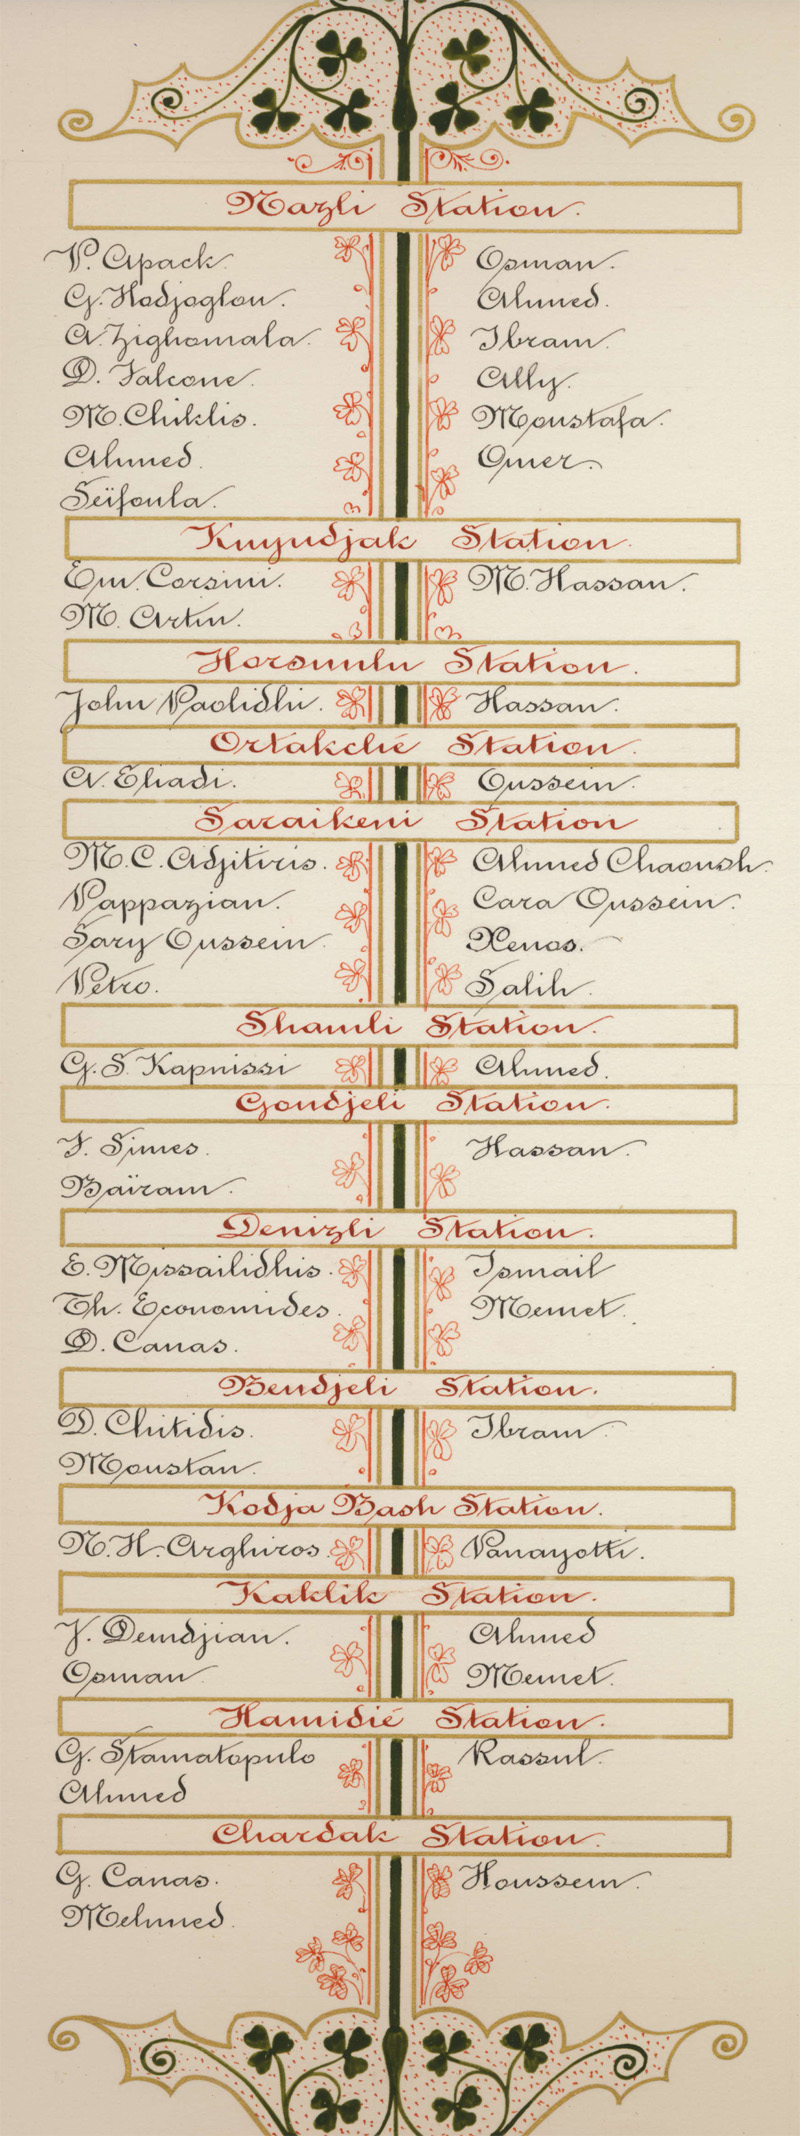 Nazli Station.
P. Apack. Osman.
G. Hadjoglou. Ahmed.
A. Zighomala. Ibram.
D. Falcone. Ally.
M. Chiklis. Moustafa.
Ahmed. Omer.
Seïfoula.
Kuyudjak Station.
Em. Corsini. M. Hassan.
M. Artin.
Horsunlu Station.
John Paolidhi. Hassan.
Ortakché Station.
A. Eliadi. Oussein.
Saraikeni Station
M. C. Adjitiris. Ahmed Chaoush.
Pappazian. Cara Oussein.
Sary Oussein. Xenos.
Petro. Salih.
Shamli Station.
G. S. Kapnissi Ahmed.
Gondjeli Station.
F. Simes. Hassan.
Baïram.
Denizli Station.
E. Missailidhis. Ismail
Th. Economides. Memet.
D. Canas.
Bendjeli Station.
D. Chitidis. Ibram.
Moustan.
Kodja Bash Station.
N. H. Arghiros. Panayotti.
Kaklik Station.
V. Demdjian. Ahmed
Osman. Memet.
Hamidié Station.
G. Stamatopulo Rassul.
Ahmed
Chardak Station.
G. Canas. Houssein.
Mehmed.